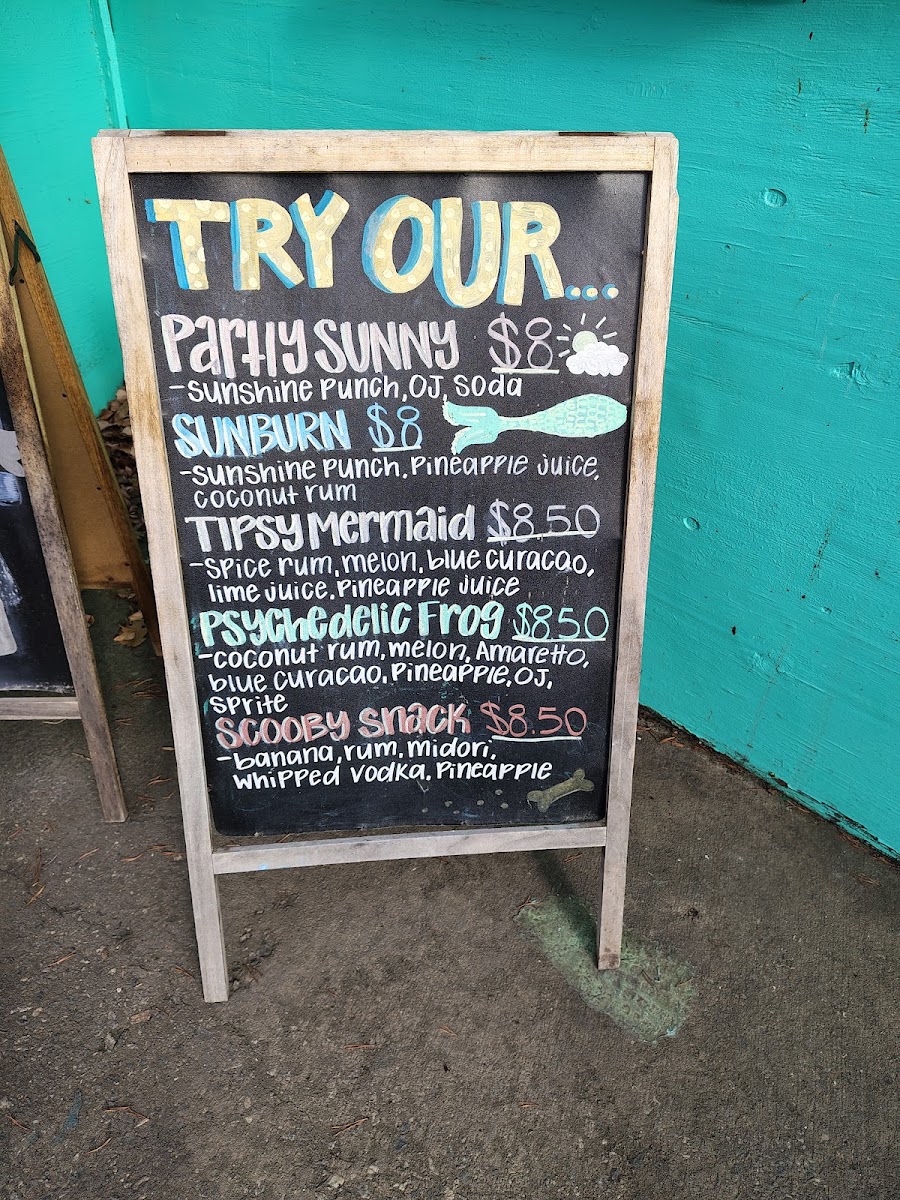 TRY OUR...
Partly SUNNY $8
-sunshine Punch, OJ, soda
SUNBURN $8
-sunshine Punch, Pineapple juice,
coconut rum
TIPSY Mermaid $8.50
-spice rum, melon, blue curacao,
lime juice, Pineapple juice
PSYchedelic Frog $8.50
-coconut rum, melon, Amaretto,
blue curacao, Pineapple, OJ,
sprite
SCOOBY snack $8.50
-banana, rum, midori,
whipped vodka, Pineapple